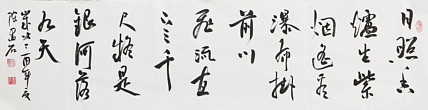 日照香
爐生紫
烟遥看
瀑布掛
前川
飛流直
下三千
尺疑是
銀河落
九天